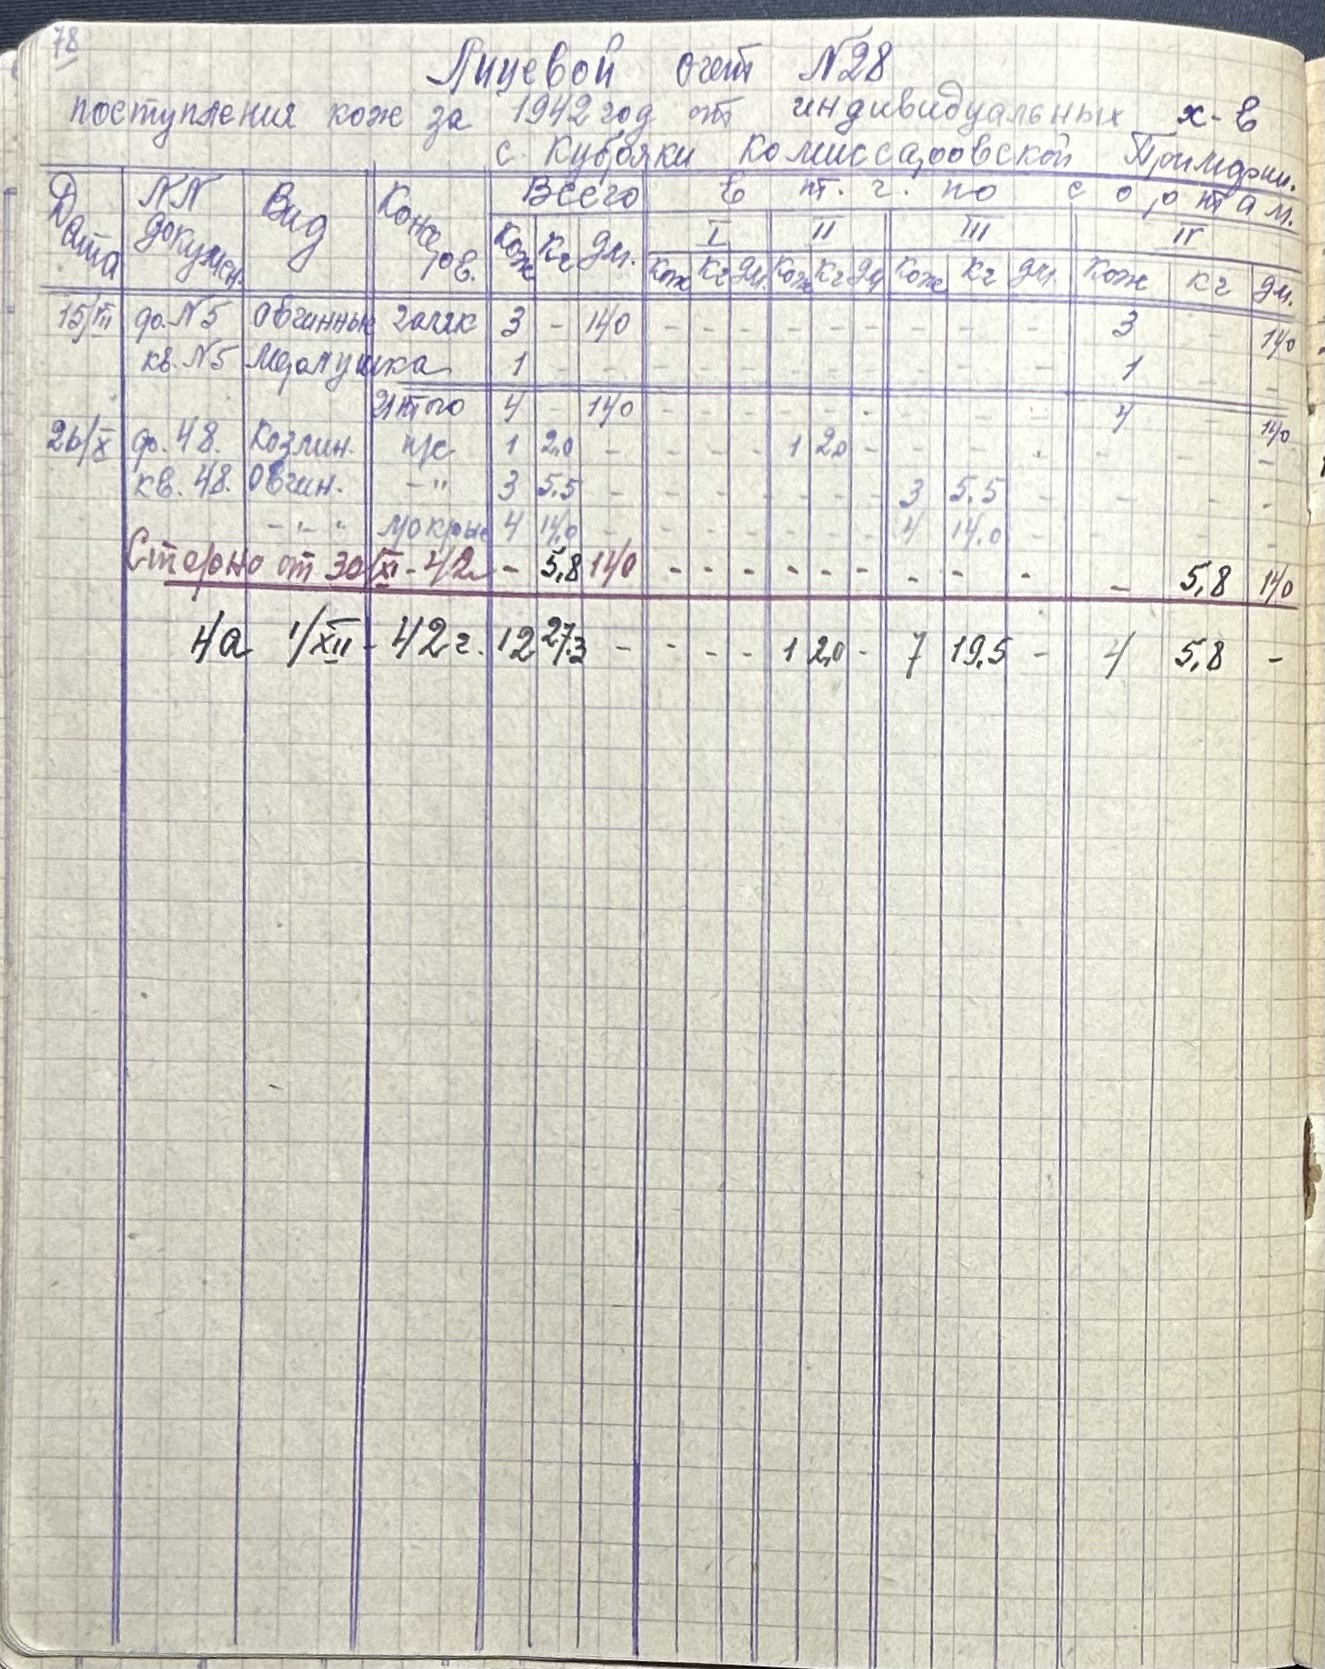 78
Лицевой счет №28
поступления кож за 1942 год от индивидуальных х-в
с. Кубряки Комиссаровской Примэрии.
Дата NN докумен. Вид Консеров. Всего в т. ч. по сортам.
I II III IV
Кож Кг дм. Кож Кг дм. Кож Кг дм Кож Кг дм. Кож Кг дм.
15/III ф. N5 Овчинные 3 - 140 - - - - - - - - - 3 - 140
кв. N5 Мерлушка 1 - - - - - - - - - - - 1 - -
Итого 4 - 140 - - - - - - - - - 4 - 140
26/X ф. 48. Козлин. п/с 1 2,0 - - - - 1 2,0 - - - - - - -
кв. 48. Овчин. -"- 3 5.5 - - - - - - - 3 5.5 - - - -
-"- мокрые 4 14,0 - - - - - - - 4 14.0 - - - -
Сторно от 30/XI-42г - 5,8 140 - - - - - - - - - - 5,8 140
На 1/XII-42г. 12 27,3 - - - - 1 2,0 - 7 19,5 - 4 5,8 -